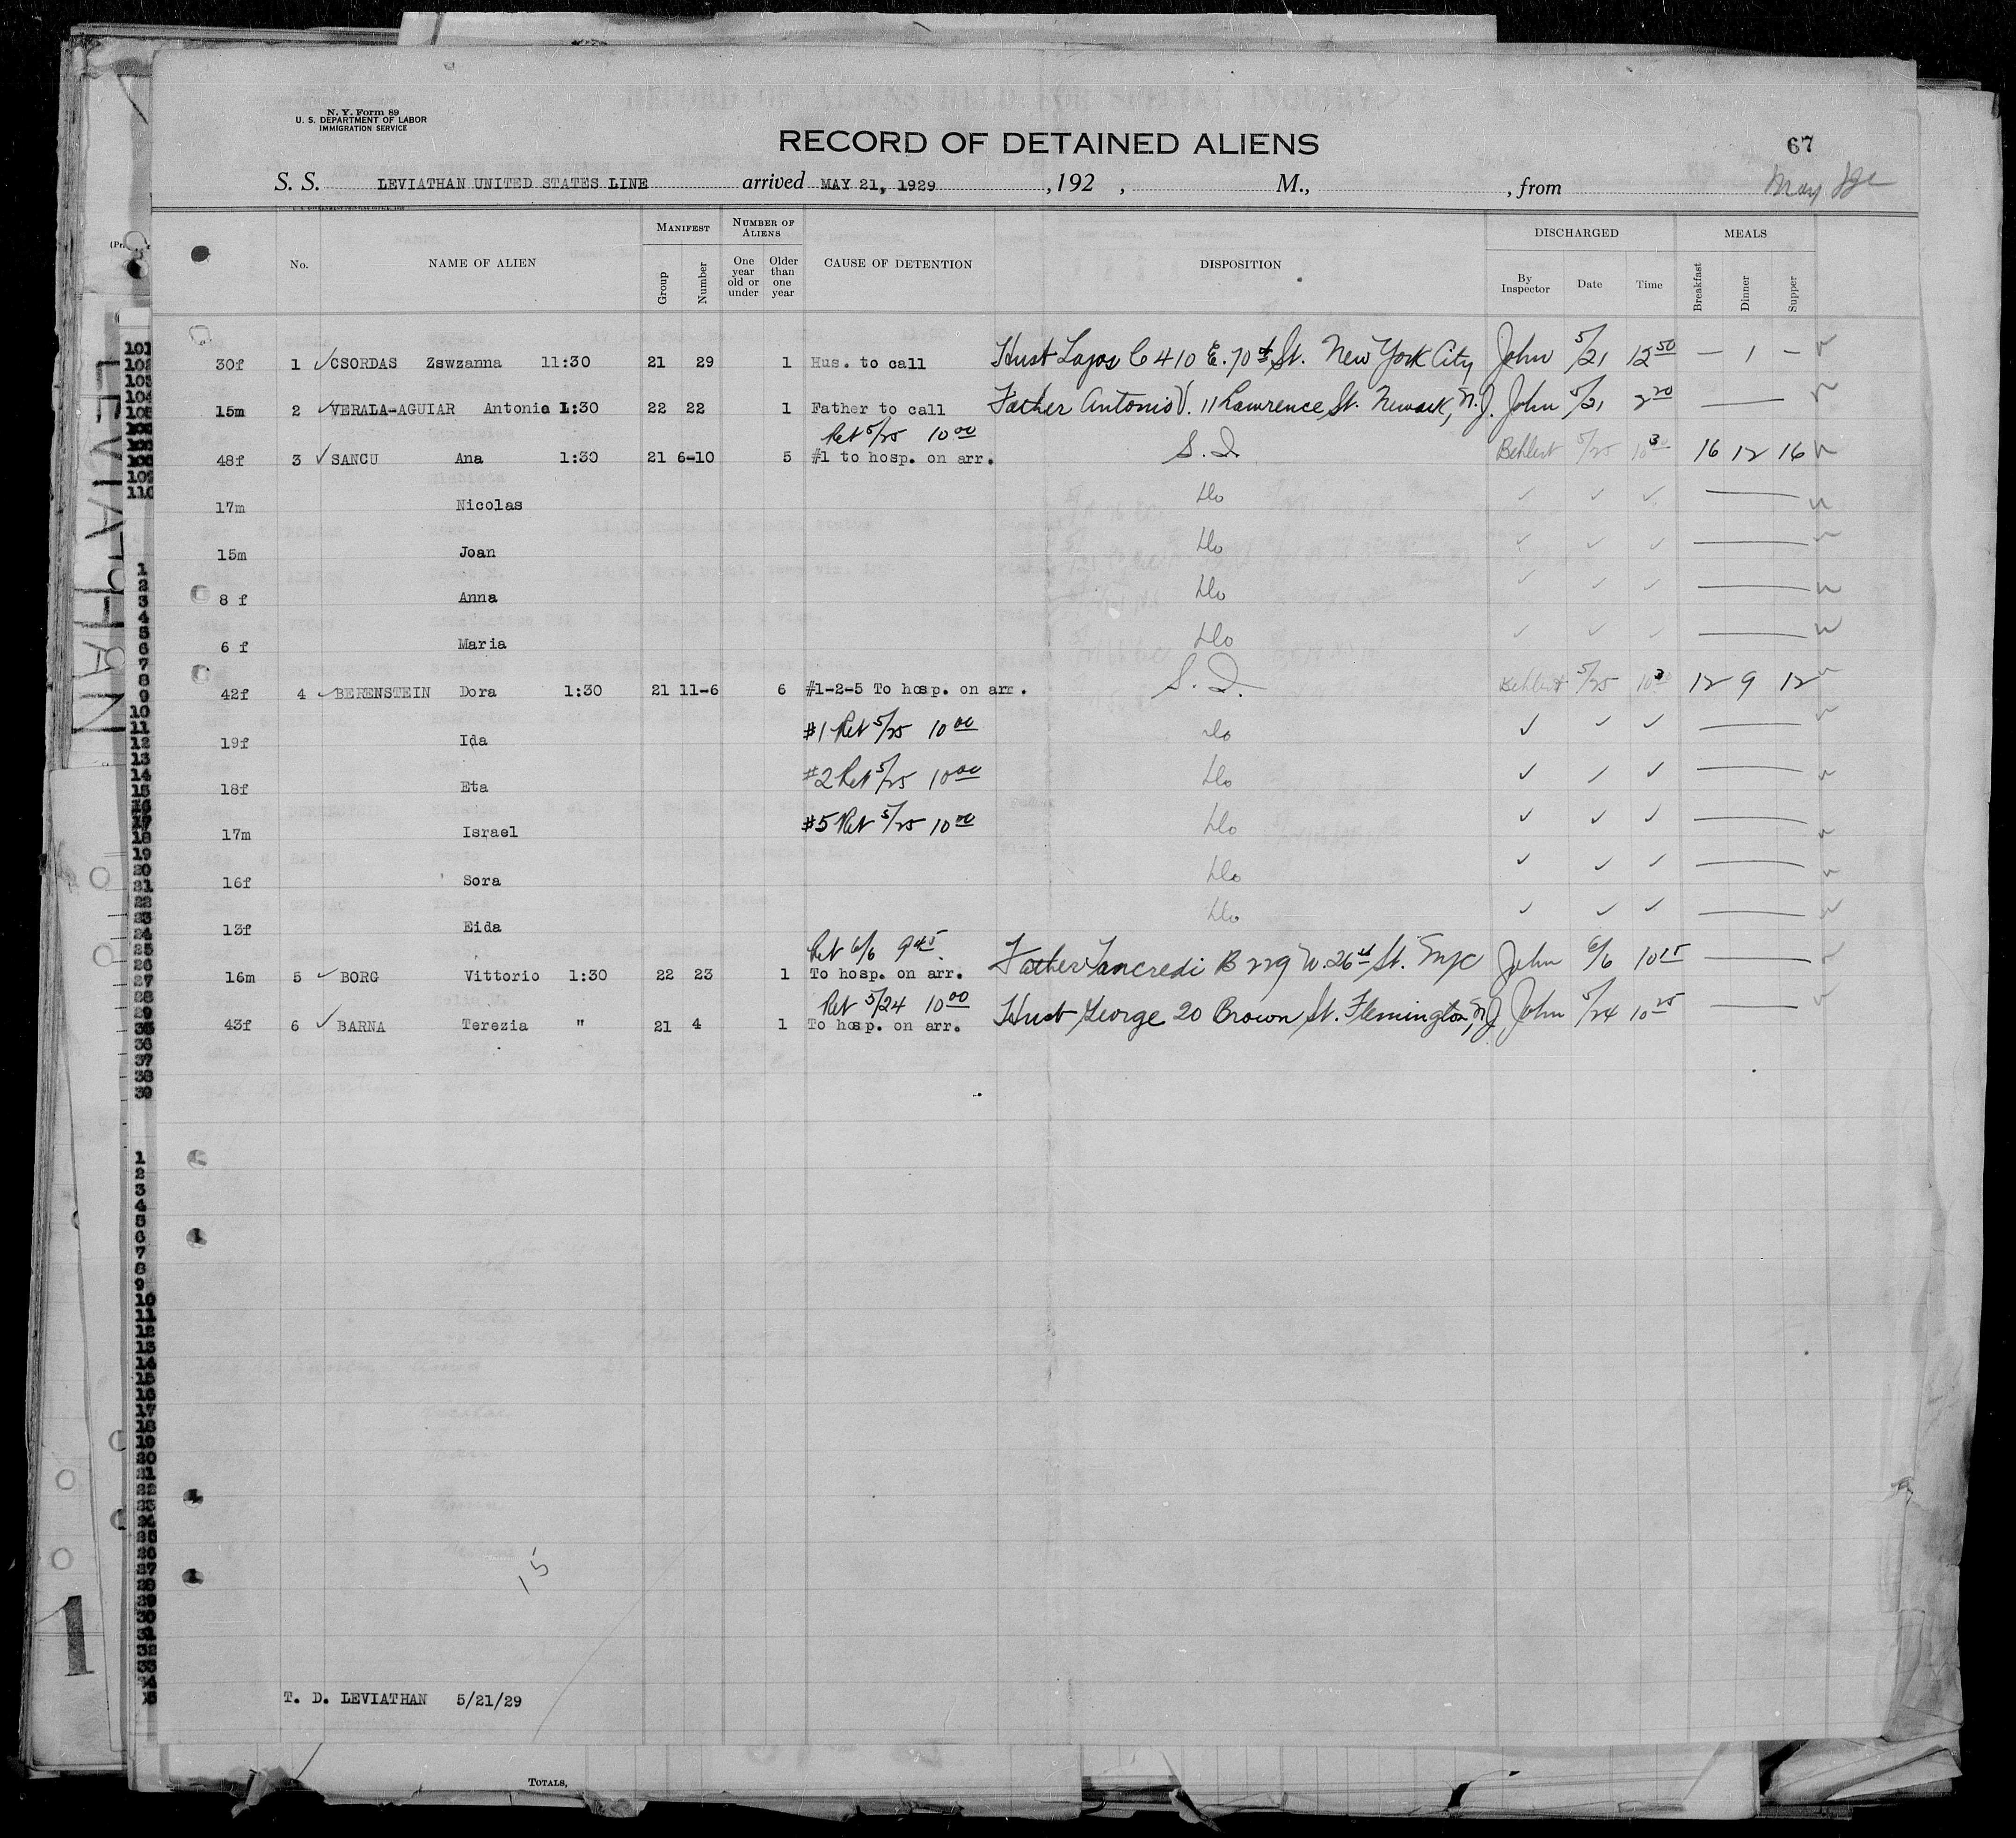 N. Y. Form 89
U. S. DEPARTMENT OF LABOR
IMMIGRATION SERVICE
RECORD OF DETAINED ALIENS
67
S. S. LEVIATHAN UNITED STATES LINE arrived MAY 21, 1929, 192 , M., , from May
No. NAME OF ALIEN MANIFEST Group Number NUMBER OF ALIENS One year old or under Older than one year CAUSE OF DETENTION DISPOSITION DISCHARGED By Inspector Date Time MEALS Breakfast Dinner Supper
30f 1 ✓ CSORDAS Zswzanna 11:30 21 29 1 Hus. to call Husb Lajos C 410 E. 70th St. New York City John 5/21 12 50 — 1 —
15m 2 ✓ VERALA-AGUIAR Antonio 1:30 22 22 1 Father to call Father Antonio V. 11 Lawrence St. Newark, N.J. John 5/21 2 20 —
Ret 5/25 10 00
48f 3 ✓ SANCU Ana 1:30 21 6-10 5 #1 to hosp. on arr. S. I. Behlert 5/25 10 30 16 12 16
17m Nicolas Do ✓ ✓ ✓ —
15m Joan Do ✓ ✓ ✓ —
8 f Anna Do ✓ ✓ ✓ —
6 f Maria Do ✓ ✓ ✓ —
42f 4 ✓ BERENSTEIN Dora 1:30 21 11-6 6 #1-2-5 To hosp. on arr. S. I. Behlert 5/25 10 30 12 9 12
19f Ida #1 Ret 5/25 10 00 Do ✓ ✓ ✓ —
18f Eta #2 Ret 5/25 10 00 Do ✓ ✓ ✓ —
17m Israel #5 Ret 5/25 10 00 Do ✓ ✓ ✓ —
16f Sora Do ✓ ✓ ✓ —
13f Eida Do ✓ ✓ ✓ —
Ret 6/6 9 45
16m 5 ✓ BORG Vittorio 1:30 22 23 1 To hosp. on arr. Father Tancredi B 229 W. 26th St. NYC John 6/6 10 15 —
Ret 5/24 10 00
43f 6 ✓ BARNA Terezia " 21 4 1 To hosp. on arr. Husb George 20 Brown St. Flemington, N.J. John 5/24 10 25 —
15
T. D. LEVIATHAN 5/21/29
TOTALS,
LEVIATHAN
1